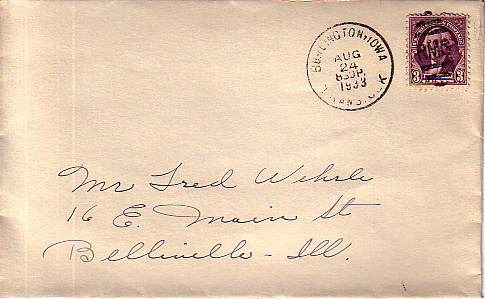 BURLINGTON, IOWA
AUG
24
830P.
1933
TRANS. CLK
RMS
3 3
Mr Fred Wehrle
16 E. Main St
Belliville - Ill.